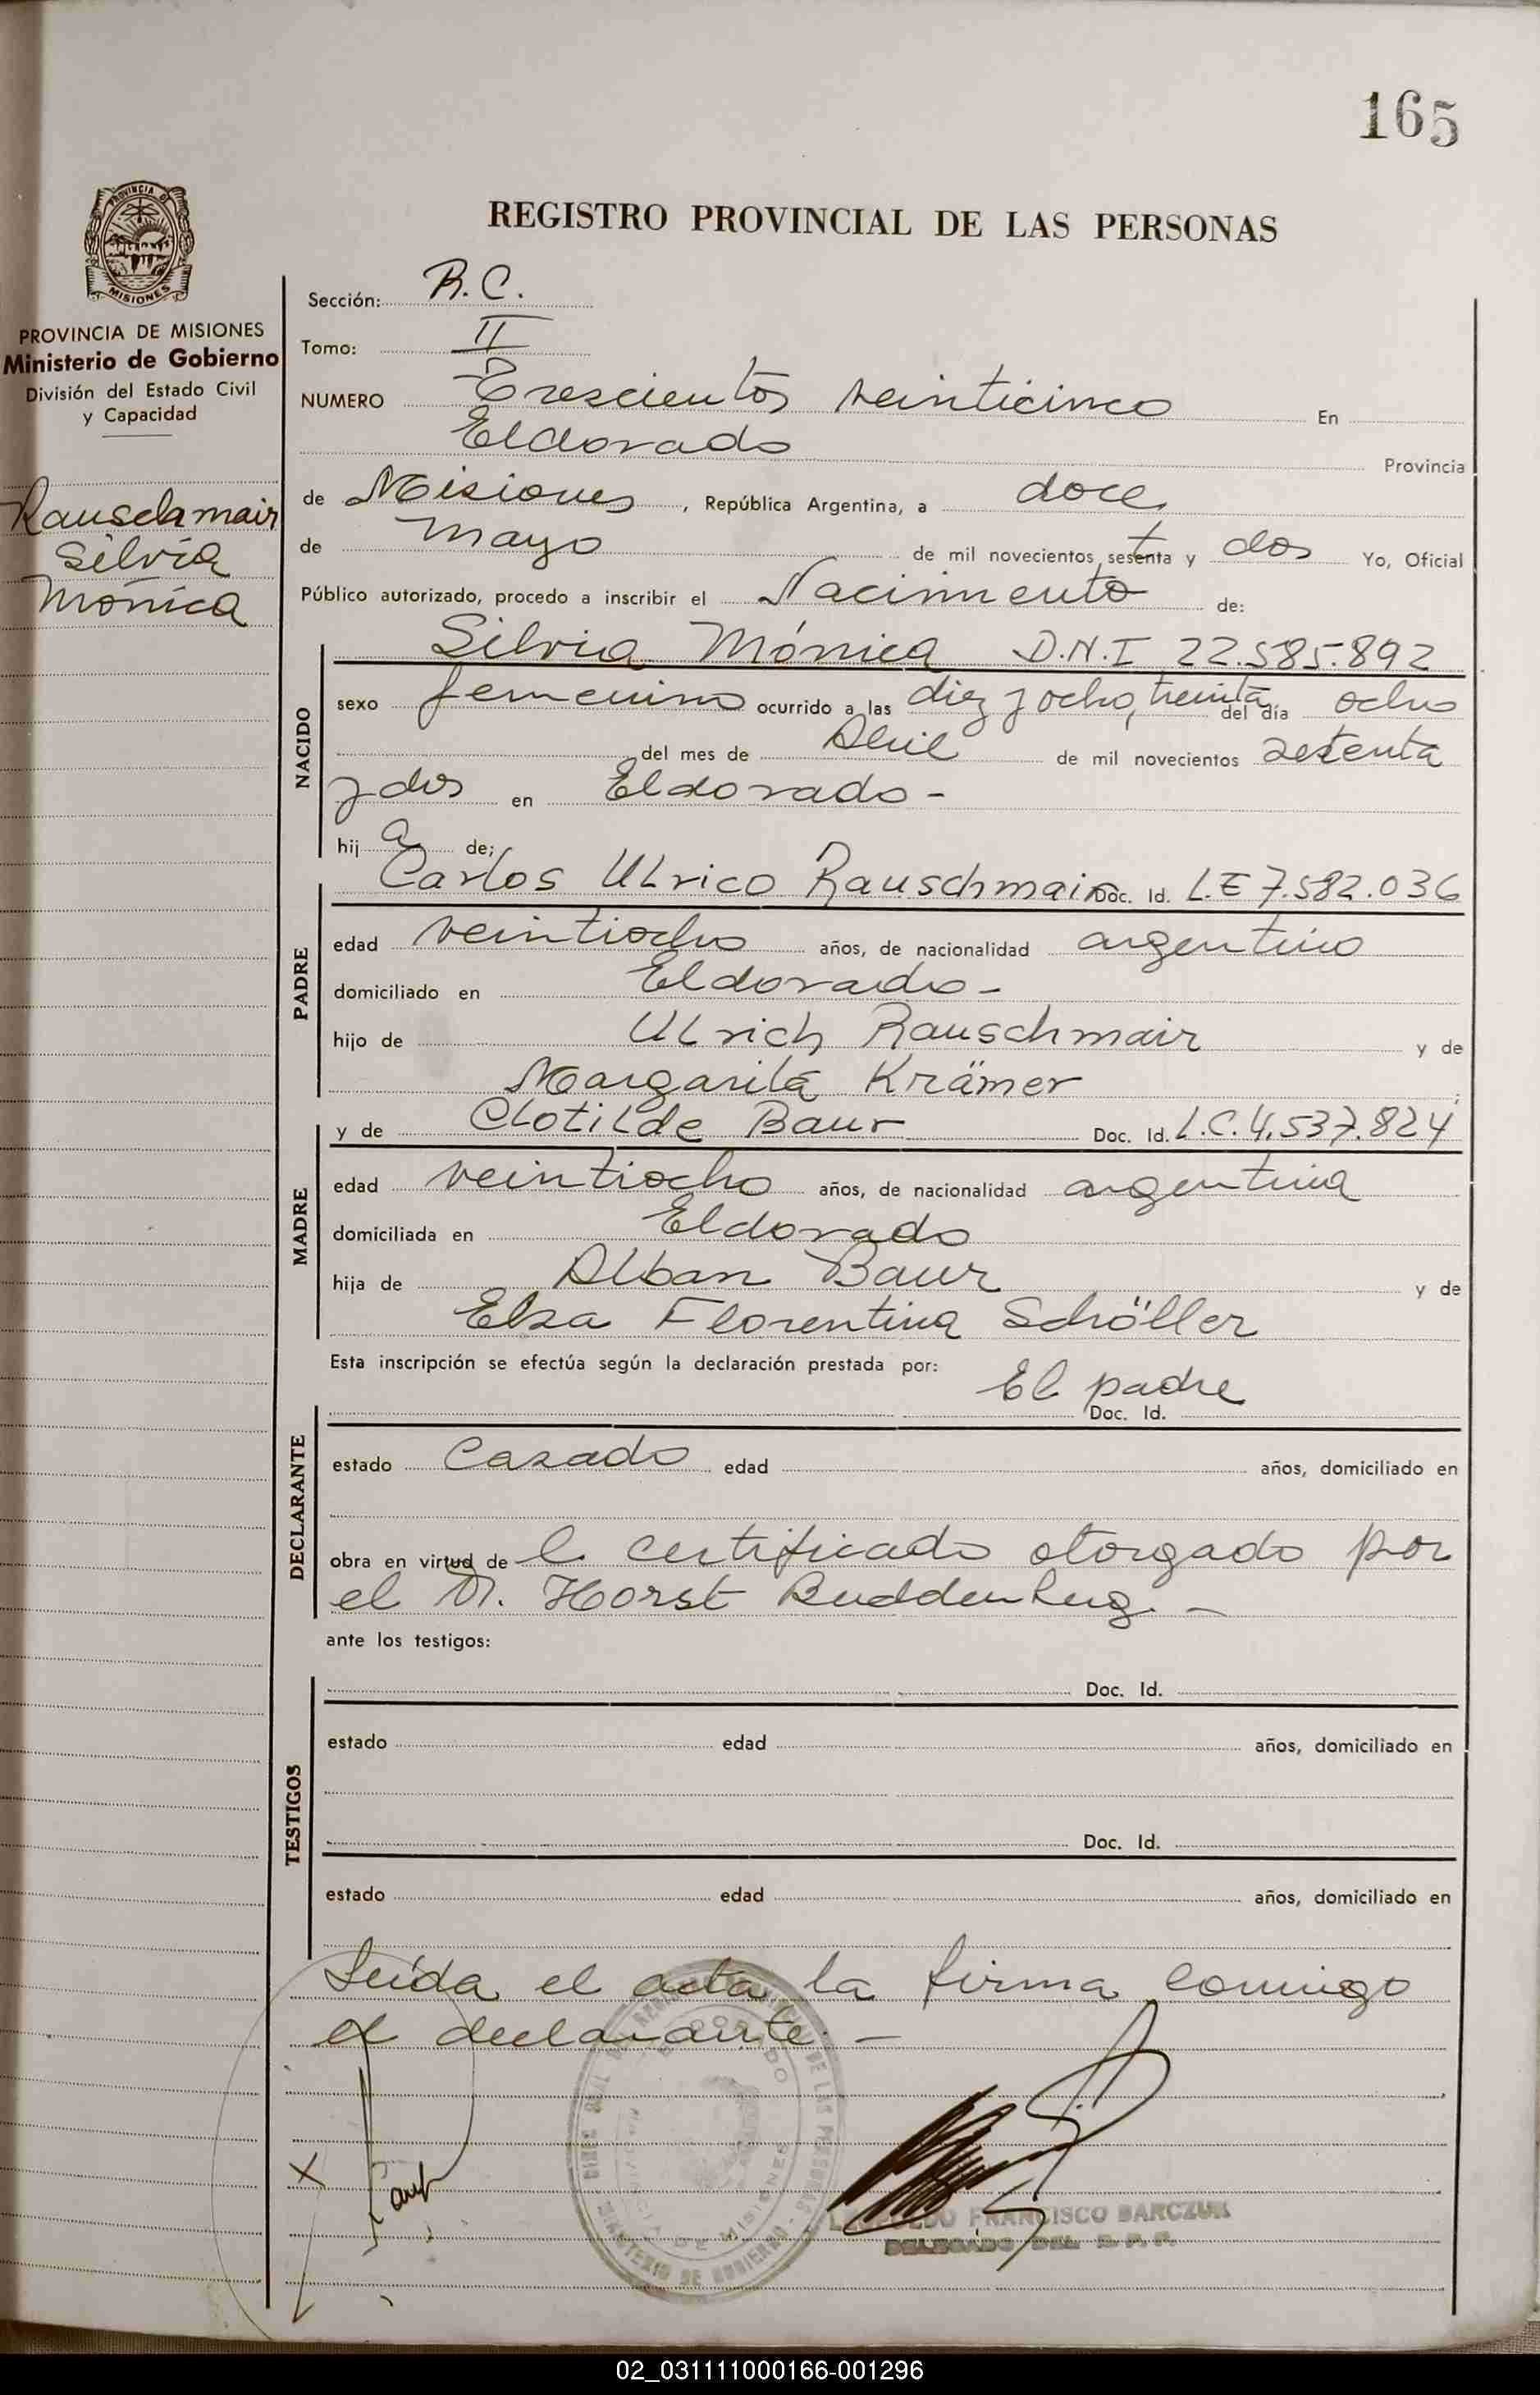 165
REGISTRO PROVINCIAL DE LAS PERSONAS
PROVINCIA DE MISIONES
PROVINCIA DE MISIONES
Ministerio de Gobierno
División del Estado Civil
y Capacidad
Rauschmair
Silvia
Mónica
Sección: R.C.
Tomo: II
NUMERO Trescientos veinticinco En
Eldorado Provincia
de Misiones, República Argentina, a doce
de Mayo de mil novecientos setenta y dos Yo, Oficial
Público autorizado, procedo a inscribir el Nacimiento de:
NACIDO
Silvia Mónica D.N.I 22.585.892
sexo femenino ocurrido a las diez y ocho, treinta del día ocho
del mes de Abril de mil novecientos setenta
y dos en Eldorado-
hij a de;
PADRE
Carlos Ulrico Rauschmair Doc. Id. L.E 7.582.036
edad veintiocho años, de nacionalidad argentino
domiciliado en Eldorado-
hijo de Ulrich Rauschmair y de
Margarita Krämer
MADRE
y de Clotilde Baur Doc. Id. L.C. 4.537.824
edad veintiocho años, de nacionalidad argentina
domiciliada en Eldorado
hija de Alban Baur y de
Elsa Florentina Schöller
Esta inscripción se efectúa según la declaración prestada por: El padre
Doc. Id.
DECLARANTE
estado Casado edad años, domiciliado en
obra en virtud de l certificado otorgado por
el Dr. Horst Buddenberg.-
ante los testigos:
TESTIGOS
Doc. Id.
estado edad años, domiciliado en
Doc. Id.
estado edad años, domiciliado en
Leída el acta la firma conmigo
el declarante.-
ELDORADO
PROVINCIA DE MISIONES
MINISTERIO DE GOBIERNO
X
LEOPOLDO FRANCISCO BARCZUK
DELEGADO DEL R.P.P.
02_031111000166-001296